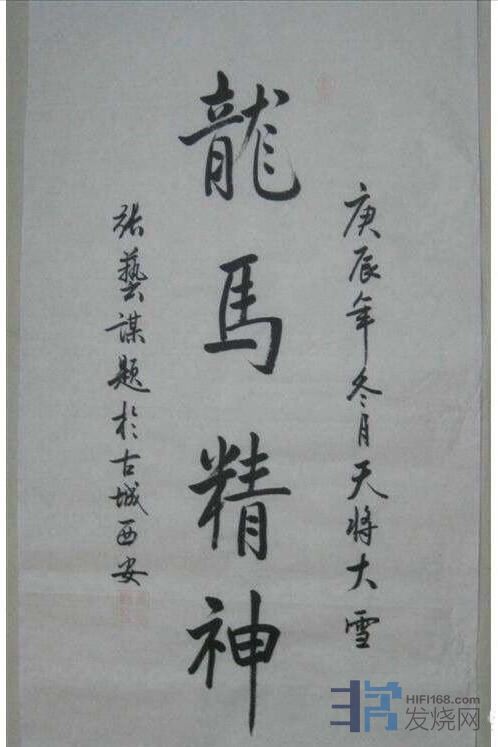 庚辰年冬月天将大雪
龍馬精神
張藝謀題於古城西安
HIFI168.com
发烧网